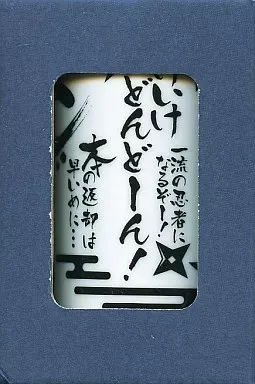 いけ
どんどーん！
一流の忍者に
なるぞー！
本の返却は
早いめに…